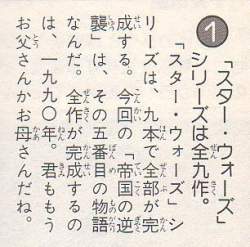 1
「スター・ウォーズ」
シリーズは全九作。
「スター・ウォーズ」シ
リーズは、九本で全部が完
成する。今回の「帝国の逆
襲」は、その五番目の物語
なんだ。全作が完成するの
は、一九九〇年。君ももう
お父さんかお母さんだね。